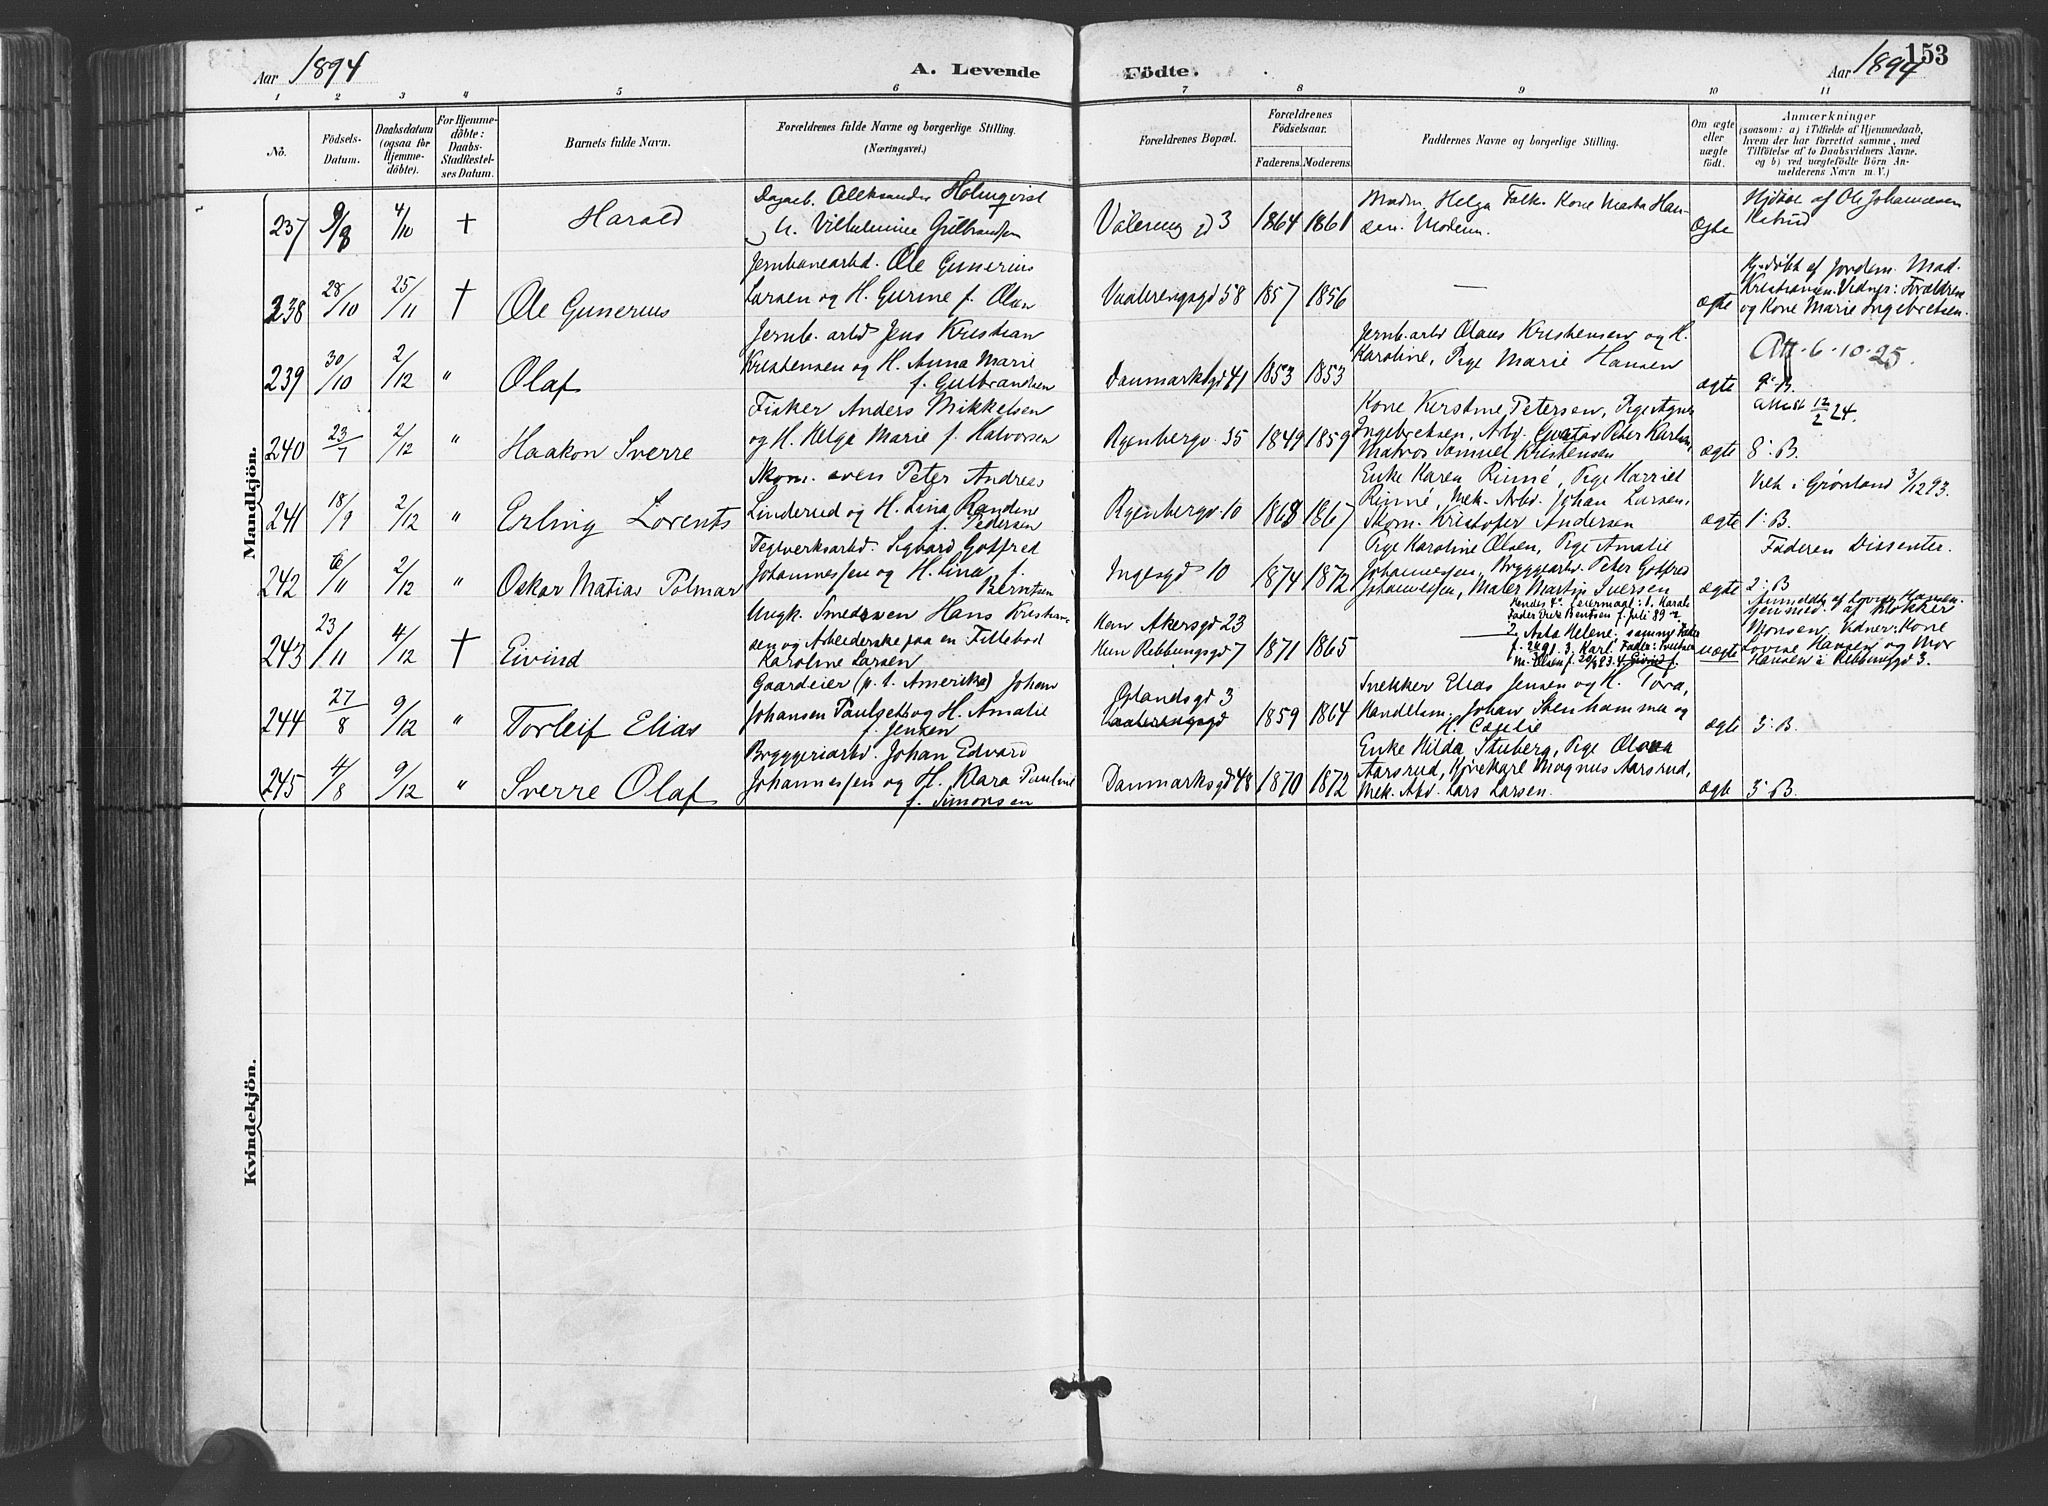 Aar 1894
A. Levende
Födte.
Aar 1894
153
1 2 3 4 5 6 7 8 9 10 11
No.
Födsels-
Datum.
Daabsdatum
(ogsaa for
Hjemme-
döbte).
For Hjemme-
döbte:
Daabs-
Stadfæstel-
ses Datum.
Barnets fulde Navn.
Forældrenes fulde Navne og borgerlige Stilling.
(Næringsvei.)
Forældrenes Bopæl.
Forældrenes
Födselsaar.
Faderens. Moderens.
Faddernes Navne og borgerlige Stilling.
Om ægte
eller
uægte
födt.
Anmærkninger
(saasom: a) i Tilfælde af Hjemmedaab,
hvem der har forrettet samme, med
Tilföielse af to Daabsvidners Navne,
og b) ved uægtefödte Börn An-
melderens Navn m. V.)
Mandkjön.
237 9/8 4/10 + Harald
Aleksander Holmqvist
Vilhelmine Gulbrandsen
Valereng gd 3 1864 1861
Madm. Helga Falk. Kone Marta Han-
sen. Modern.
Ægte
Hjdøbt af Ole Johannesen
238 28/10 25/11 + Ole Gunerius
Jernbanearbd. Ole Gunerius
Larsen og H. Gurine f. Olsen
Vaalerengsgd 58 1857 1856
—
ægte
Hj.døbt af Jordem. Mad.
Kristiansen. Vidner: Forældrene
og Kone Marie Ingebretsen.
239 30/10 2/12 " Olaf
Jernb. arbd Jens Kristian
Kristensen og H. Anna Marie
f. Gulbrandsen
Danmarksgd 41 1853 1853
Jernb. arbd Olaus Kristensen og H.
Karoline, Pige Marie Hansen
ægte
Att. 6-10-25.
9. B.
240 23/7 2/12 " Haakon Sverre
Fisker Anders Mikkelsen
og H. Helga Marie f. Halvorsen
Ryenbergv. 35 1849 1859
Kone Kirstine Petersen, Pige Agnes
Ingebretsen, Arbd. Gustav Peter Karlsen,
Matros Samuel Kristensen
ægte
Attest 12/2 24.
8. B.
241 18/9 2/12 " Erling Lorents
Skom. sven Peter Andreas
Linderud og H. Lina Randine
f. Pedersen
Ryenbergv. 10 1868 1867
Enke Karen Rinné, Pige Harriet
Rinné, Mek. Arbd. Johan Larsen,
Skom. Kristofer Andersen
ægte
Viet i Grønland 3/12 93.
1. B.
242 6/11 2/12 " Oskar Matias Tolmar
Teglverksarbd. Sigvard Gotfred
Johannessen og H. Lina f.
Berntsen
Ingesgd 10 1874 1872
Pige Karoline Olsen, Pige Amalie
Johannessen, Bryggearb. Peter Gotfred
Johannessen, Maler Martin Iversen
ægte
Faderen Dissenter.
2. B
243 23/11 4/12 + Eivind
Ungk. Smedsven Hans Kristian-
sen og Arbeiderske paa en Fillebod
Karoline Larsen
Ham Akersgd 23
Hun Ribbungsgd 7 1871 1865
2. Asta Helene, samme Fader
3. Karl. Fader:
uægte
Anmeldt af Lovise Hansen.
Hjemmed. af Klokker
Monsen, Vidner: Kone
Lovise Hansen og Mor
Hansen i Ribbungsgd 3.
244 27/8 9/12 " Torleif Elias
Gaardeier (p. t. Amerika) Johan
Johansen Paulset og H. Amalie
f. Jensen
Oplandsgd 3
Vaalerengsgd 1859 1864
Snekker Elias Jensen og H. Tora,
Handelsm. Johan Stenhammer og
H. Cecilie
ægte
3. B.
245 4/8 9/12 " Sverre Olaf
Bryggeriarbd. Johan Edvard
Johannessen og H. Klara Pauline
f. Simonsen
Danmarksgd 48 1870 1872
Enke Hilda Stuberg, Pige Olava
Aarsrud, Kjørekarl Magnus Aarsrud,
Mek. Arbd. Lars Larsen.
ægte
3. B.
Kvindekjön.